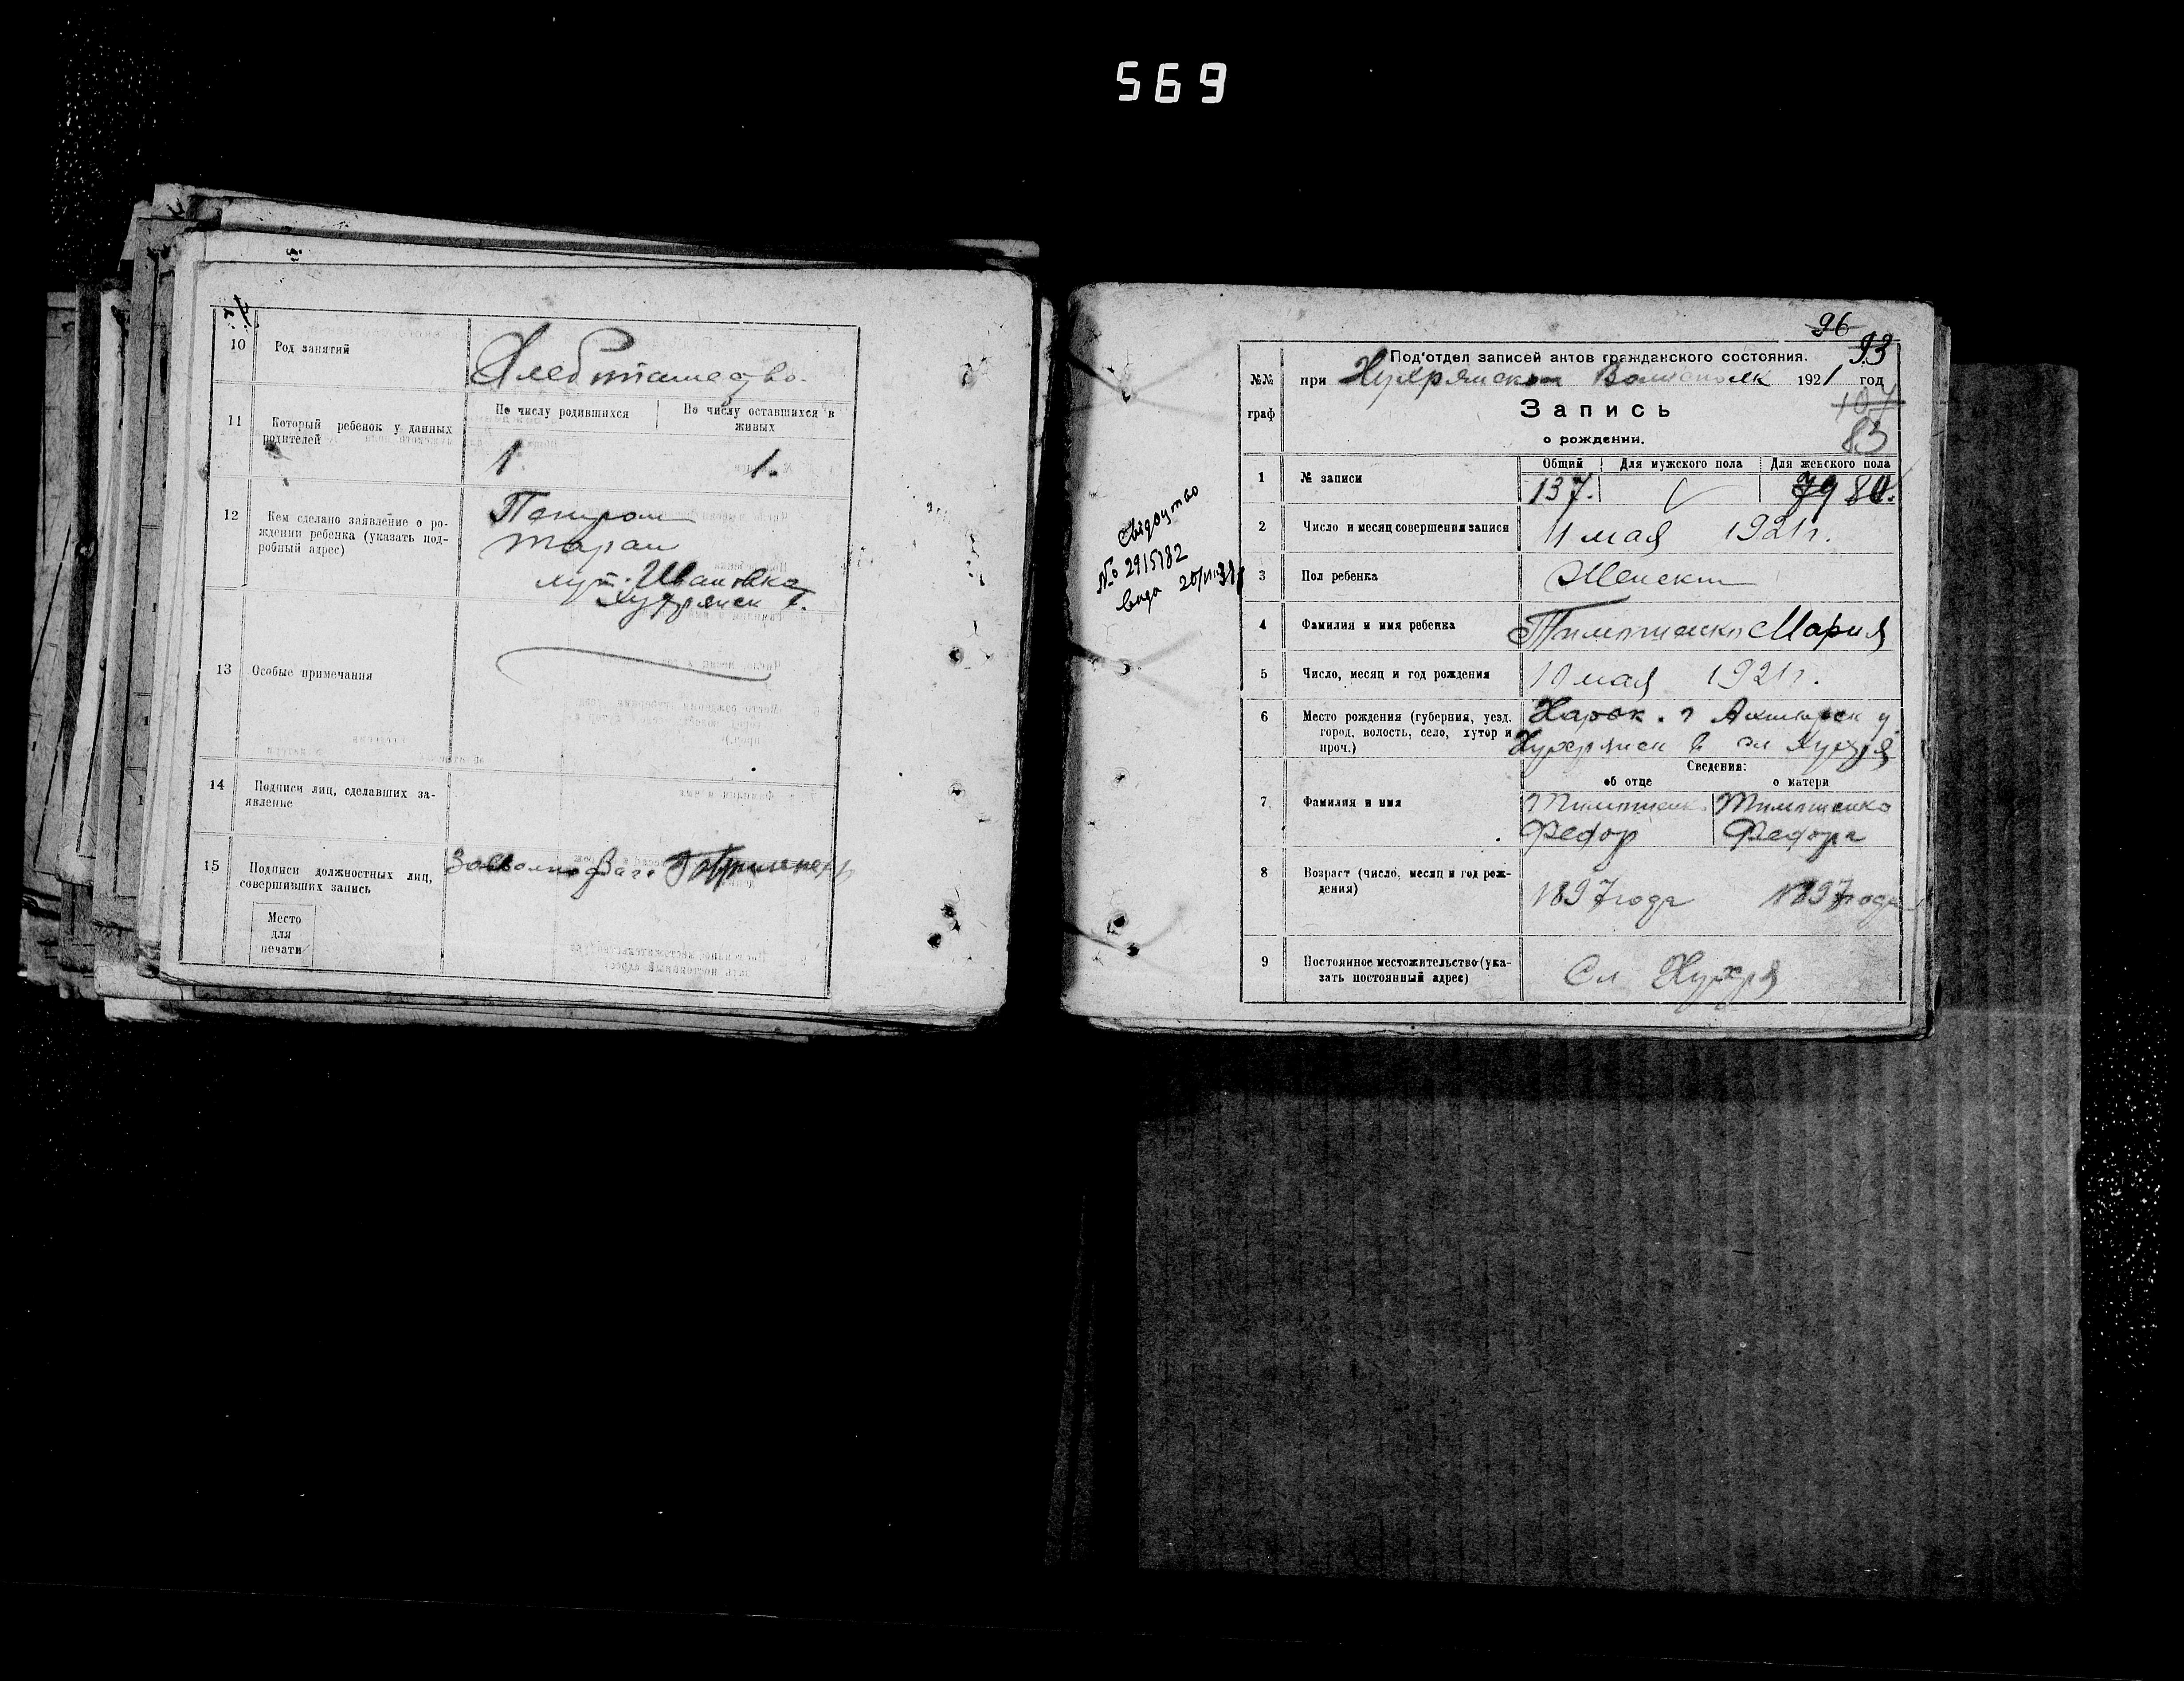 569
10 Род занятий Хлебопашество.
11 Который ребенок у данных родителей
По числу родившихся По числу оставшихся в живых
1. 1.
12 Кем сделано заявление о ро-
ждении ребенка (указать под-
робный адрес)
Петром
Таран
хут. Ивановка
Хухрянск в.
13 Особые примечания
14 Подписи лиц, сделавших за-
явление
15 Подписи должностных лиц,
совершивших запись
Место
для
печати
96
93
Под'отдел записей актов гражданского состояния.
№№ граф
при Хухрянском Волисполк 1921 год
107
83
Запись
о рождении.
Общий Для мужского пола Для женского пола
1 № записи 137. 79 80.
2 Число и месяц совершения записи 11 мая 1921 г.
3 Пол ребенка Женский
4 Фамилия и имя ребенка Тимошенко Мария
5 Число, месяц и год рождения 10 мая 1921 г.
6 Место рождения (губерния, уезд,
город, волость, село, хутор и
проч.)
Харьк. г Ахтырск у
Хухрянск в сл Хухря
Сведения:
об отце о матери
7 Фамилия и имя
Тимошенк Тимошенко
Федор Федора
8 Возраст (число, месяц и год рож-
дения)
1897 года 1897 года
9 Постоянное местожительство (ука-
зать постоянный адрес)
Сл Хухря
Свідоцтво
№ 2915182